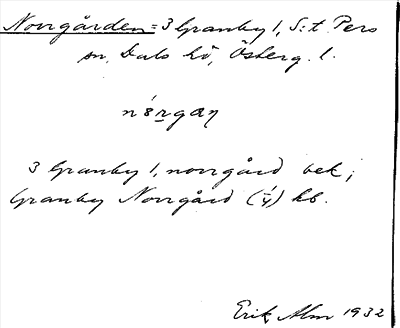 Norrgården = 3 Granby 1, S:t Pers
sn, Dals hd, Österg. l.
nórgan
3 Granby 1, norrgård bek;
Granby Norrgård (1/4) kb.
Erik Alm 1932